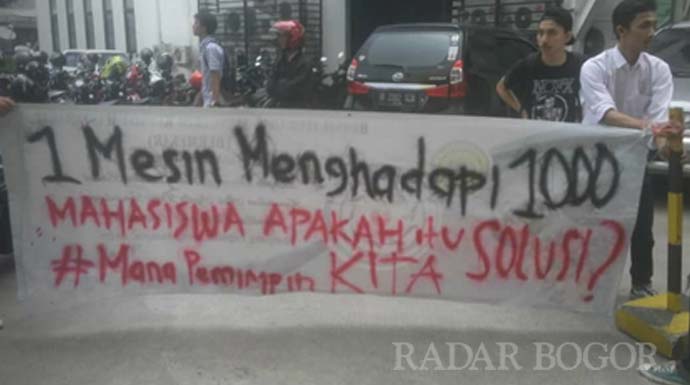 1 Mesin Menghadapi 1000
MAHASISWA APAKAH itu SOLUSI?
#Mana Pemimpin KITA
RADAR BOGOR